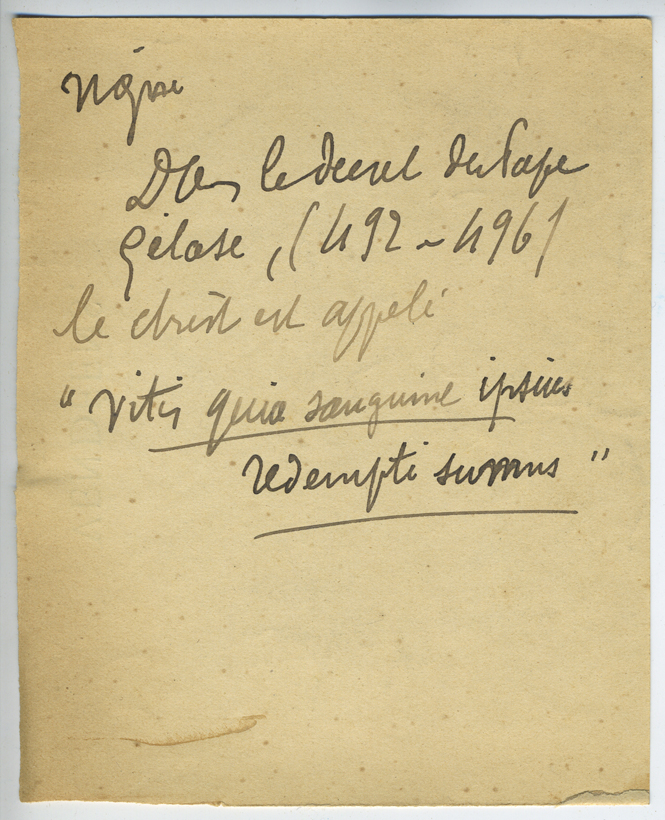 vigne
Dans le decret du Pape
Gélase, (492 ~ 496)
le christ est appelé
" vitis quia sanguine ipsius
redempti sumus "